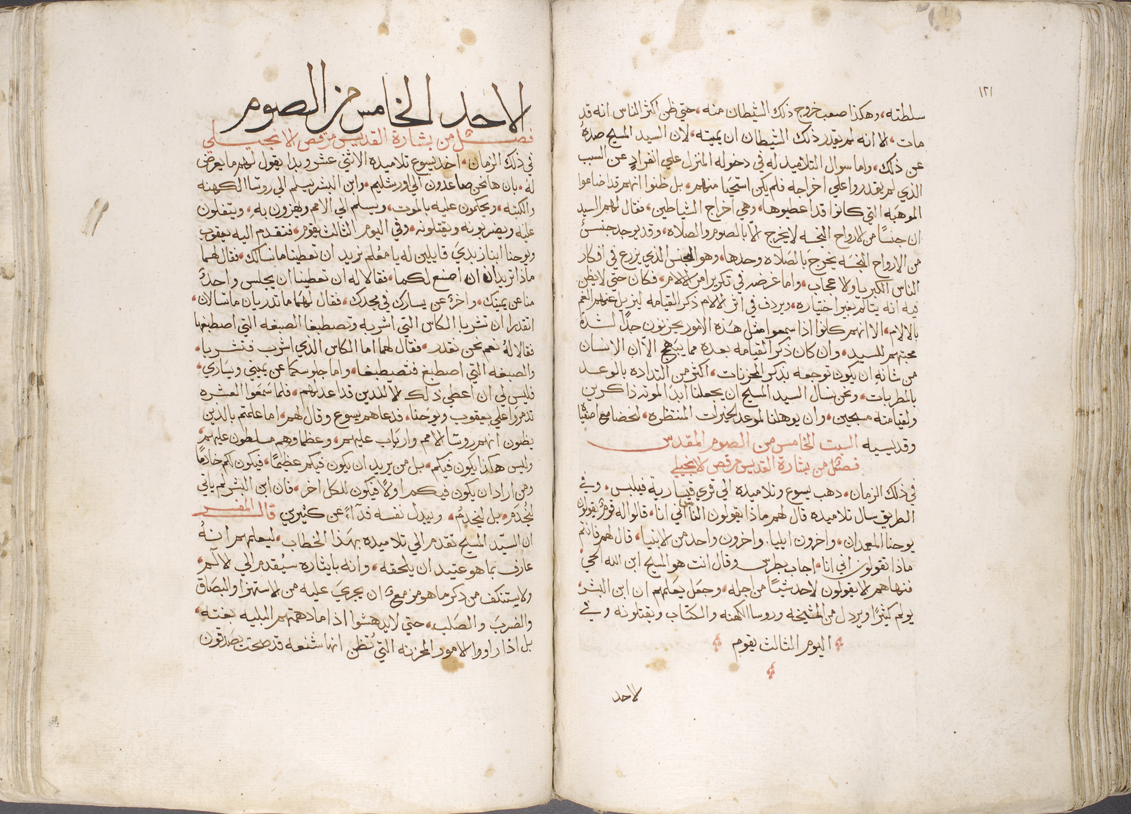 ١٢١
سلطته، وهكذا صعب خروج ذلك الشيطان منه، حتي ظن اكثر الناس انه قد
مات، لا انه لم يقدر ذلك الشيطان ان يميته، لان السيد المسيح صده
عن ذلك، واما سوال التلاميذ له في دخوله المنزل علي انفراد عن السبب
الذي لم يقدروا علي اخراجه فلم يكن استحيا منهم، بل ظنوا انهم قد اضاعوا
الموهبه التي كانوا قد اعطوها، وهي اخراج الشياطين، فقال لهم السيد
ان جنسًا من الارواح النجسه لا يخرج الا بالصوم والصلاه، وقد يوجد جنس
من الارواح النجسه يخرج بالصلاه وحدها، وهو الجنس الذي يزرع في افكار
الناس الكبريا والاعجاب، واما غرضه في تكرير امر الالام، فكان حتي لا يظن
فيه انه يتالم بغير اختياره، ويردف في اثر الالام ذكر القيامه ليزيل عنهم الغم
بالالام، الا انهم كانوا اذا سمعوا مثل هذه الامور يحزنون جدًا لشدة
محبتهم للسيد، وان كان ذكر القيامه بعده مما يبهج الا ان الانسان
من شانه ان يكون توجعه بذكر المحزنات، اكثر من التذاذه بالوعد
بالمطربات، ونحن نسال السيد المسيح ان يجعلنا ابدًا لموته ذاكرين
ولقيامته مسبحين، وان يوهلنا لموعد الخيرات المنتظره، لنحضا مع اصفيا
وقديسيه السبت الخامس من الصوم المقدس
فصل من بشارة القديس مرقص الانجيلي
في ذلك الزمان، ذهب يسوع وتلاميذه الي قري قيسارية فيلبس، وفي
الطريق سال تلاميذه قال لهم ماذا يقولون الناس اني انا، فقالوا له قوم يقولون
يوحنا المعمدان، واخرون ايليا، واخرون واحد من الانبيا، قال لهم فانتم
ماذا تقولون اني انا، اجاب بطرس وقال انت هو المسيح ابن الله الحي
فنهاهم الا يقولون لاحد شيًا من اجله، وجعل يعلمهم ان ابن البشر
يولم كثيرًا ويرذل من المشيخه وروسا الكهنه والكتاب ويقتلونه وفي
اليوم الثالث يقوم
الاحد
الاحد الخامس من الصوم
فصل من بشارة القديس مرقص الانجيلي
في ذلك الزمان، اخذ يسوع تلاميذه الاثني عشر وبدا يقول لهم ما يعرض
له، بان ها نحن صاعدون الي اورشليم، وابن البشر يسلم الي روسا الكهنه
والكتبه، ويحكمون عليه بالموت، ويسلم الي الامم ويهزون به، ويتفلون
عليه ويضربونه ويقتلونه، وفي اليوم الثالث يقوم، فتقدم اليه يعقوب
ويوحنا ابنا زبدي قايلين له يا معلم نريد ان تعطينا ما نسالك، فقال لهما
ماذا تريدان ان اصنع لكما، فقالا له ان تعطينا ان يجلس واحدٌ
منا عن يمينك، واخرٌ عن يسارك في مجدك، فقال لهما ما تدريان ما تسالان،
اتقدران ان تشربا الكاس التي اشربه وتصطبغا الصبغه التي اصطبغها
فقالا له نعم نحن نقدر، فقال لهما اما الكاس الذي اشرب فتشربا،
والصبغه التي اصطبغ فتصطبغا، واما جلوسكما عن يميني ويساري،
فليس لي ان اعطي ذلك الا للذين قد اعد لهم، فلما سمعوا العشره
تدمروا علي يعقوب ويوحنا، فدعاهم يسوع وقال لهم، اما علمتم بالذين
يظنون انهم روسا الامم وارباب عليهم، وعظماوهم مسلطون عليهم
وليس هكذا يكون فيكم، بل من يريد ان يكون فيكم عظيمًا، فيكون لكم خادمًا
ومن اراد ان يكون فيكم اولًا فيكون للكل اخر، فان ابن البشر لم ياتي
ليُخدم، بل ليَخدم، ويبدل نفسه فداءً عن كثيرين قال المفسر
ان السيد المسيح تقدم الي تلاميذه بهذا الخطاب، ليعلمهم انه
عارف بما هو عتيد ان يلحقه، وانه بايثاره سيقدم الي الالام،
ولا يستنكف من ذكر ما هو مزمع ان يجري عليه من الاستهزا والبصاق
والضرب والصلب، حتي لا يدهشوا اذا ما دهمتهم البليه بغته،
بل اذا راووا الامور المحزنه التي تُظن انها شنعه قد صحت يصدقون